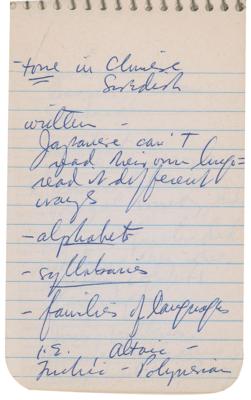 - tone in Chinese
Swedish
written -
Japanese can't
read their own lang=
read it different
ways
- alphabets
- syllabaries
- families of languages
i.e. altaic -
- Polynesian